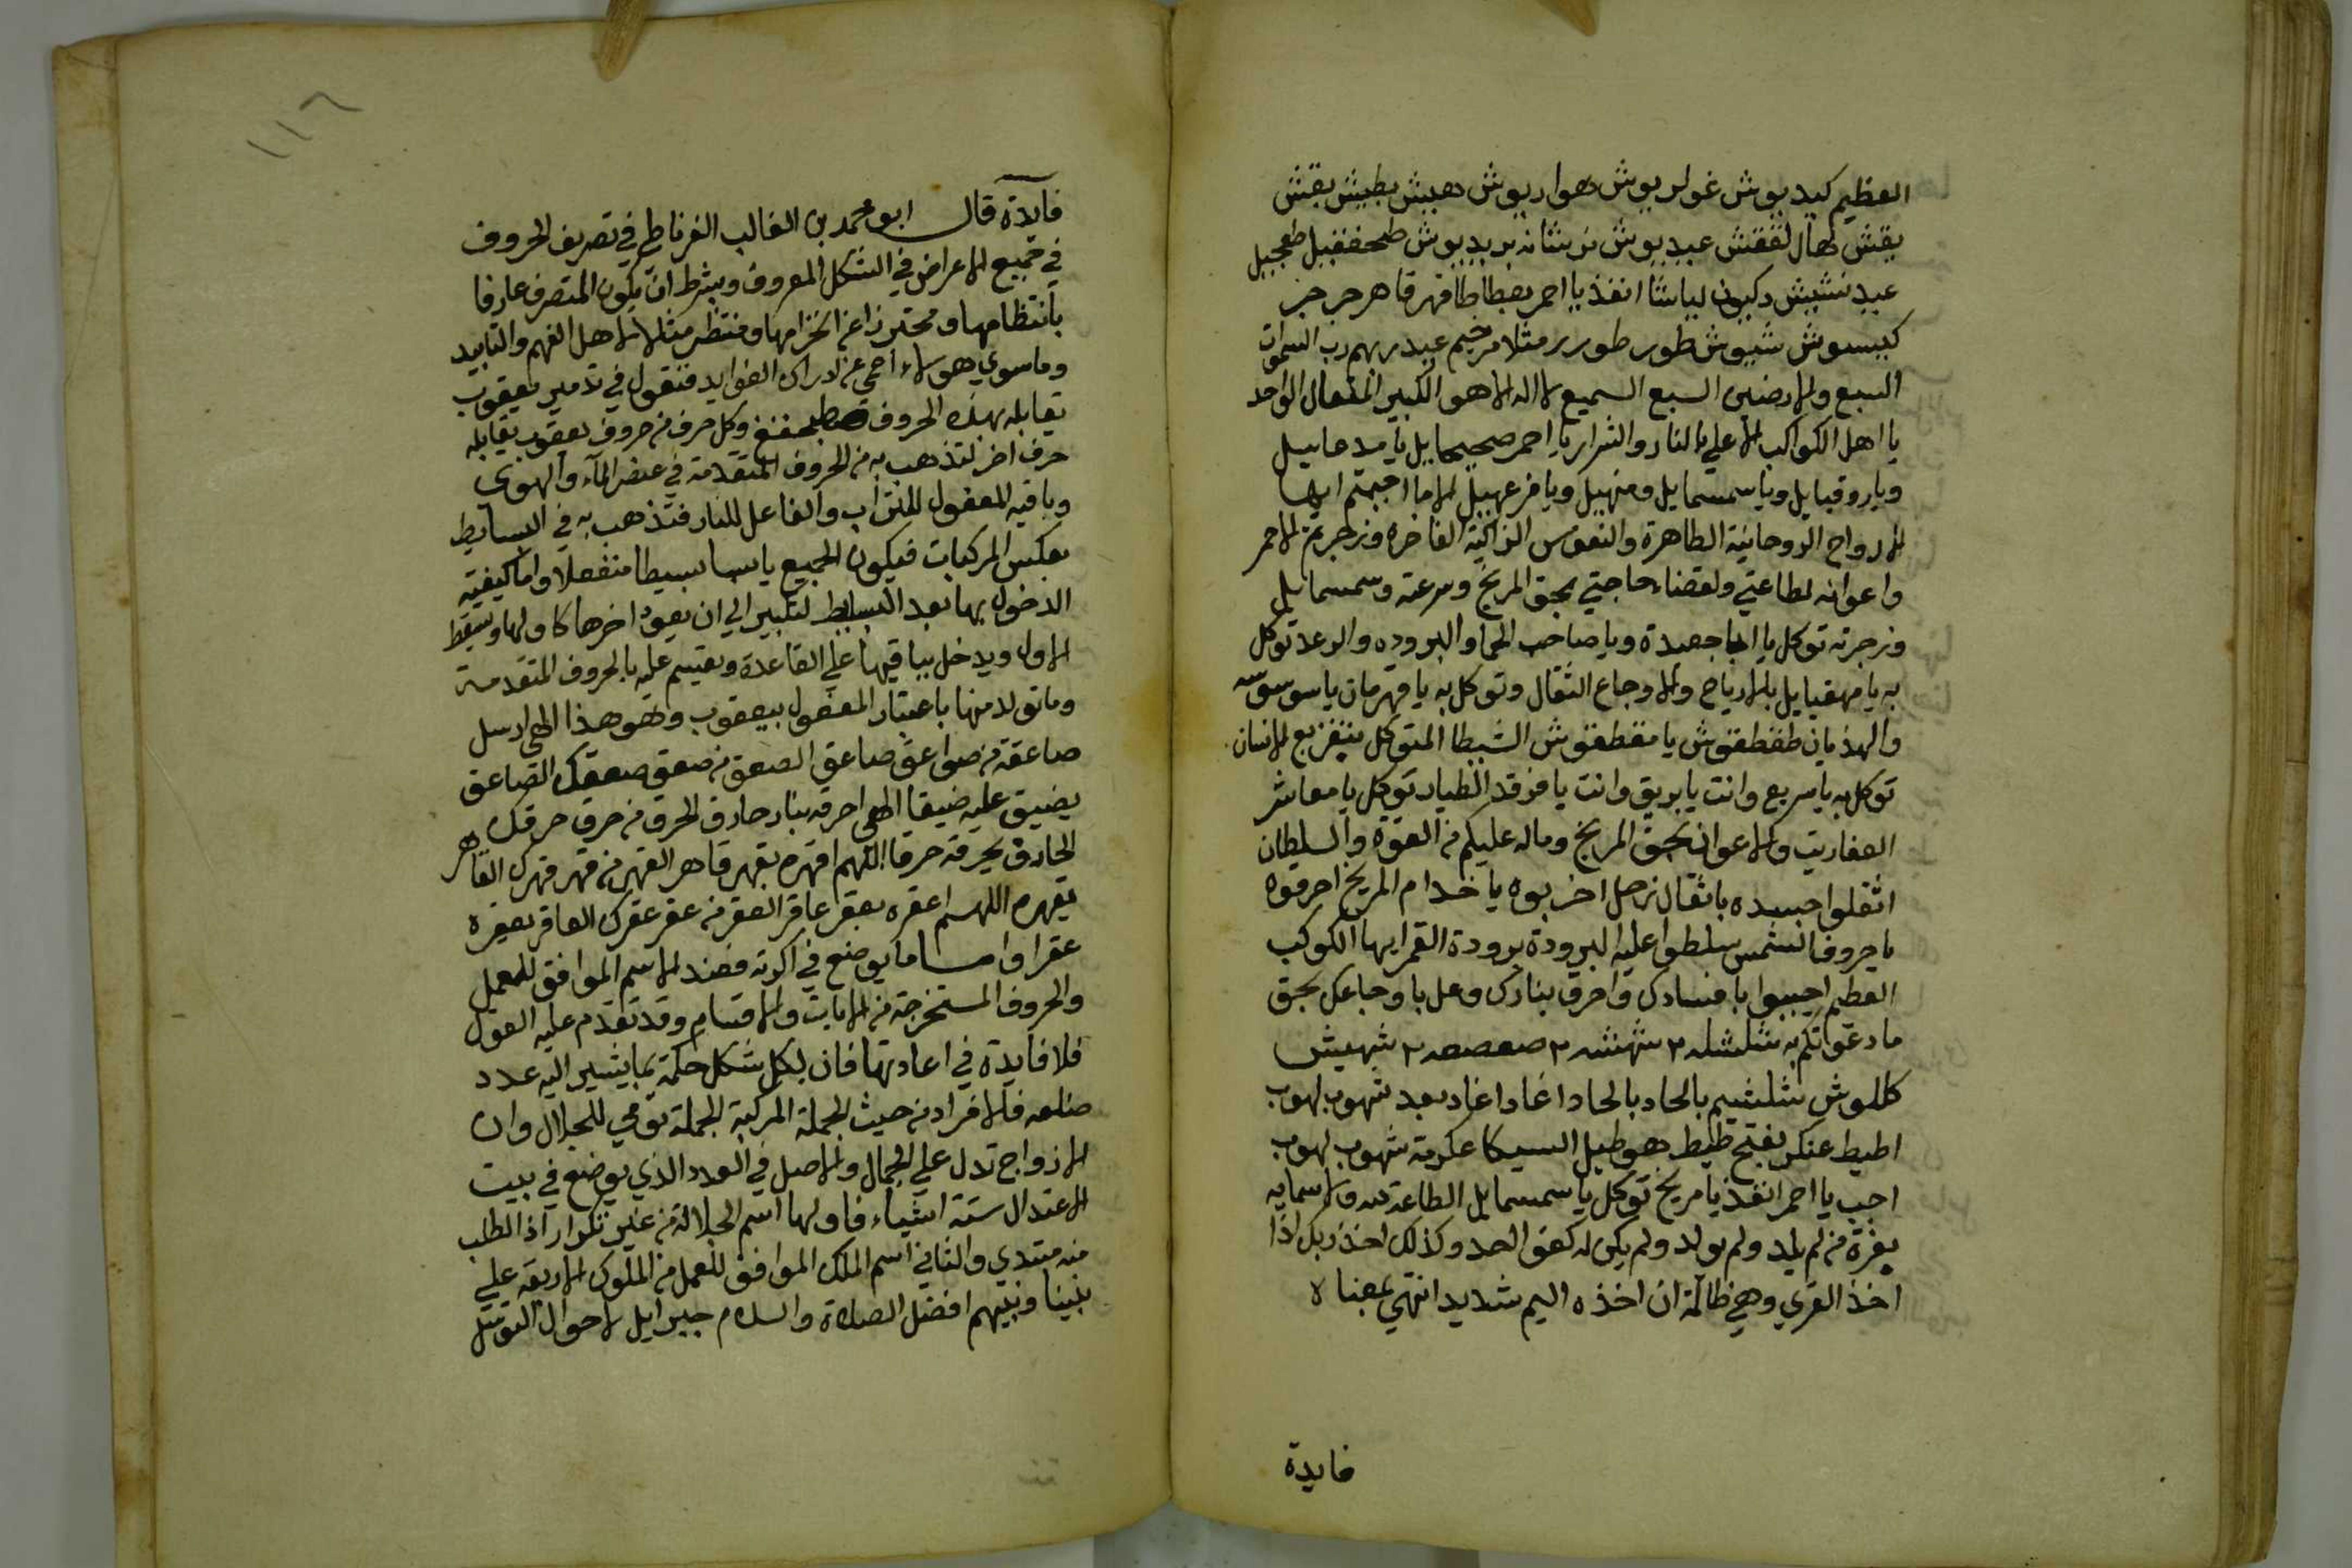 العظيم كيد بوش غولر بوش هواربوش هبيش بطيش بقش
بقش لهال لقفش عبدبوش نرشانه بربدبوش طحفقيل طعجيل
عبد نشيش دكيون لياشا انفذ يا احمر بعطاطا قهر قاهر جر جر
كبيسوش شيوش طور طورر مثلا مرخيم عبد ربهم رب السموات
السبع والارضين السبع السميع لا اله الا هو الكبير المتعال الواحد
يا اهل الكواكب الاعلي بالنار والشرار يا احمر صحيحايل يا
ويا روقيايل ويا سمسمايل ومنهيل ويا فزعهييل الا ما اجبتم ايها
الارواح الروحانية الطاهرة والنفوس الزاكية الفاخره وزجرتم الاحمر
واعوانه لطاعتي ولقضاء حاجتي بحق المريخ وسرعته وسمسمايل
وزجرته توكل يا ويا صاحب الحما والبروده والرعد توكل
به يا مهقيايل بالارياح والاوجاع الثقال وتوكل به يا قهرمان يا سوسوسه
والهذيان طقطقوش يا مقطقوش الشيطا المتوكل بتفزيع الانسان
توكل به يا سريع وانت يا بريق وانت يا فرقد الطيار توكل يا معاشر
العفاريت والاعوان بحق المريخ وماله عليكم من القوة والسلطان
اثقلوا جسده باثقال زحل اضربوه يا خدام المريخ احرقوه
يا حروف الشمس سلطوا عليه البرودة برودة القمر ايها الكوكب
العظيم اجيبوا بافسادك واحرق بنارك وعل باوجاعك بحق
ما دعوتكم به شلشله ٢ شهشه ٢ صعصعه ٢ شهيش
كللوش شلشيم بالحاد بالحاد اغاد اغاد بعد شهوب لهوب
اطيط عنكر بفتح طيط هوطيل السيكا عكرمة شهوب لهوب
اجب يا احمر انفذ يا مريخ توكل يا سمسمايل الطاعة لله ولاسمايه
بعزة من لم يلد ولم يولد ولم يكن له كفوا احد وكذلك اخذ ربك اذا
اخذ القري وهي ظالمة ان اخذه اليم شديد انتهي بمعناه
فايدة
١١٦
فايدة قال ابو محمد بن الغالب الغرناطي في تصريف الحروف
في جميع الاعراض في الشكل المعروف وبشرط ان يكون المتصرف عارفا
بانتظامها ومحترزا عن انخزامها ومنتظر مثلا لاهل الفهم والتابيد
وما سوي هولاء اعمي عن ادراك الفوايد فنقول في تدمير يعقوب
تقابله بهذه الحروف وكل حرف من حروف يعقوب يقابله
حرف اخر لتذهب به من الحروف المتقدمة في عنصر الماء والهوي
وباقيه المفعول للتراب والفاعل للنار فتذهب به في البسايط
بعكس المركبات فيكون الجميع يابسا بسيطا منفعلا واما كيفية
الدخول بها بعد البسايط لتكبير الي ان يعود اخرها كاولها ويسقط
الاول ويدخل بباقيها علي القاعدة ويقسم عليه بالحروف المتقدمة
وما تولد منها باعتبار المفعول بيعقوب وهو هذا الهي ارسل
صاعقة من صواعق صاعق الصعق من صعق صعقك الصاعق
يضيق عليه ضيقا الهي احرقه بنار حارق الحرق من حرق حرقك
الحارق يحرقه حرقا اللهم اقهره بقهر قاهر القهر من قهر قهرك القاهر
تقهره اللهم اعقره بعقر عاقر العقر من عقر عقرك العاقر بعقره
عقرا واما ما يوضع في اكرته فضد الاسم الموافق للعمل
والحروف المستخرجة من الايات والاقسام وقد تقدم عليه القول
فلا فايدة في اعادتها فان لكل شكل حكمة بما يشير اليه عدد
ضلعه فالافراد من حيث الجملة المركبة الجملة تومي للجلال وان
الازواج تدل علي الجمال والاصل في العدد الذي يوضع في بيت
الاعتدال ستة اشياء فاولها اسم الجلالة من غير تكرار اذ الطلب
منه مبتدي والثاني اسم الملك الموافق للعمل من الملوك الاربعة علي
نبينا ونبيهم افضل الصلاة والسلام جبرايل لاحوال التوسل